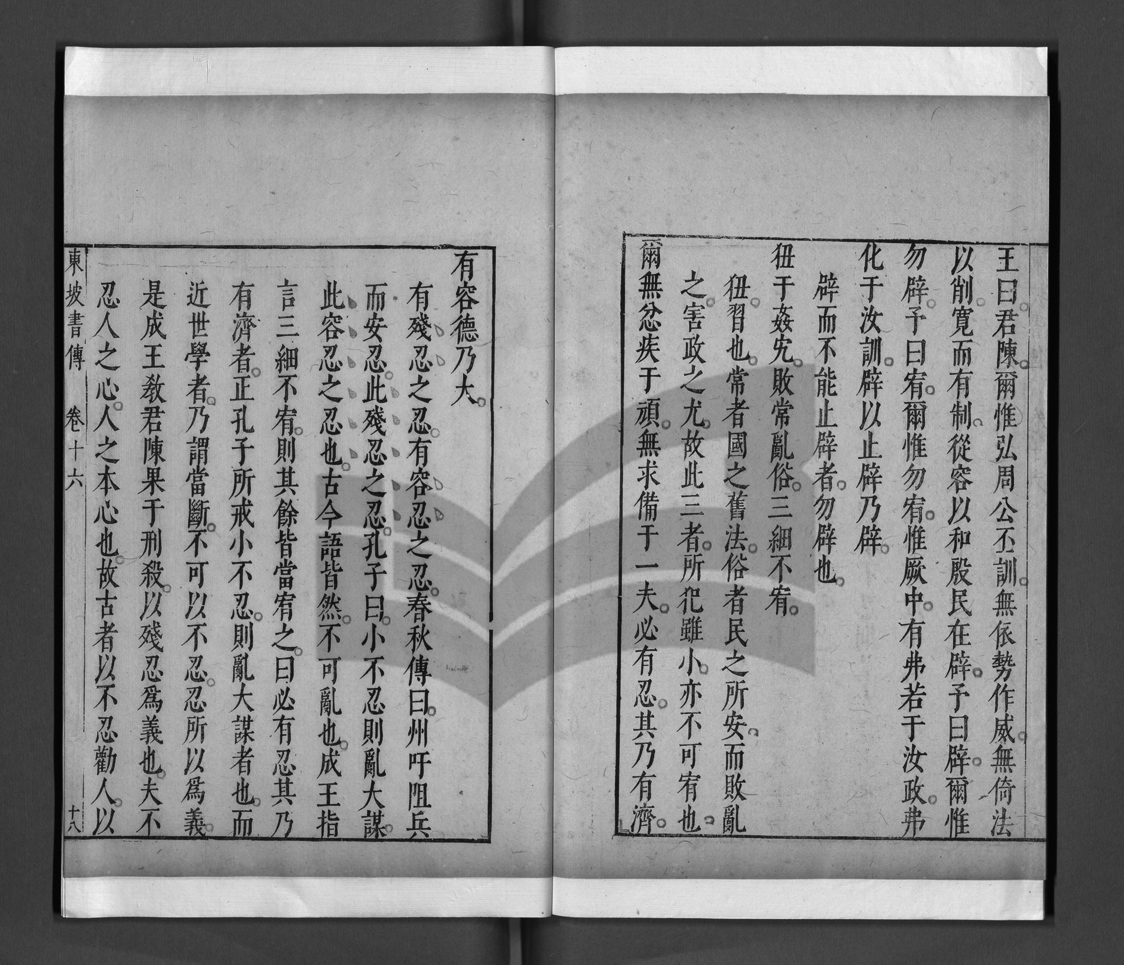 王曰君陳爾惟弘周公丕訓無依勢作威無倚法
以削寬而有制從容以和殷民在辟予曰辟爾惟
勿辟予曰宥爾惟勿宥惟厥中有弗若于汝政弗
化于汝訓辟以止辟乃辟
辟而不能止辟者勿辟也
狃于姦宄敗常亂俗三細不宥
狃習也常者國之舊法俗者民之所安而敗亂
之害政之尤故此三者所犯雖小亦不可宥也
爾無忿疾于頑無求備于一夫必有忍其乃有濟
有容德乃大
有殘忍之忍有容忍之忍春秋傳曰州吁阻兵
而安忍此殘忍之忍孔子曰小不忍則亂大謀
此容忍之忍也古今語皆然不可亂也成王指
言三細不宥則其餘皆當宥之曰必有忍其乃
有濟者正孔子所戒小不忍則亂大謀者也而
近世學者乃謂當斷不可以不忍忍所以爲義
是成王敎君陳果于刑殺以殘忍爲義也夫不
忍人之心人之本心也故古者以不忍勸人以
東坡書傳 卷十六 十八